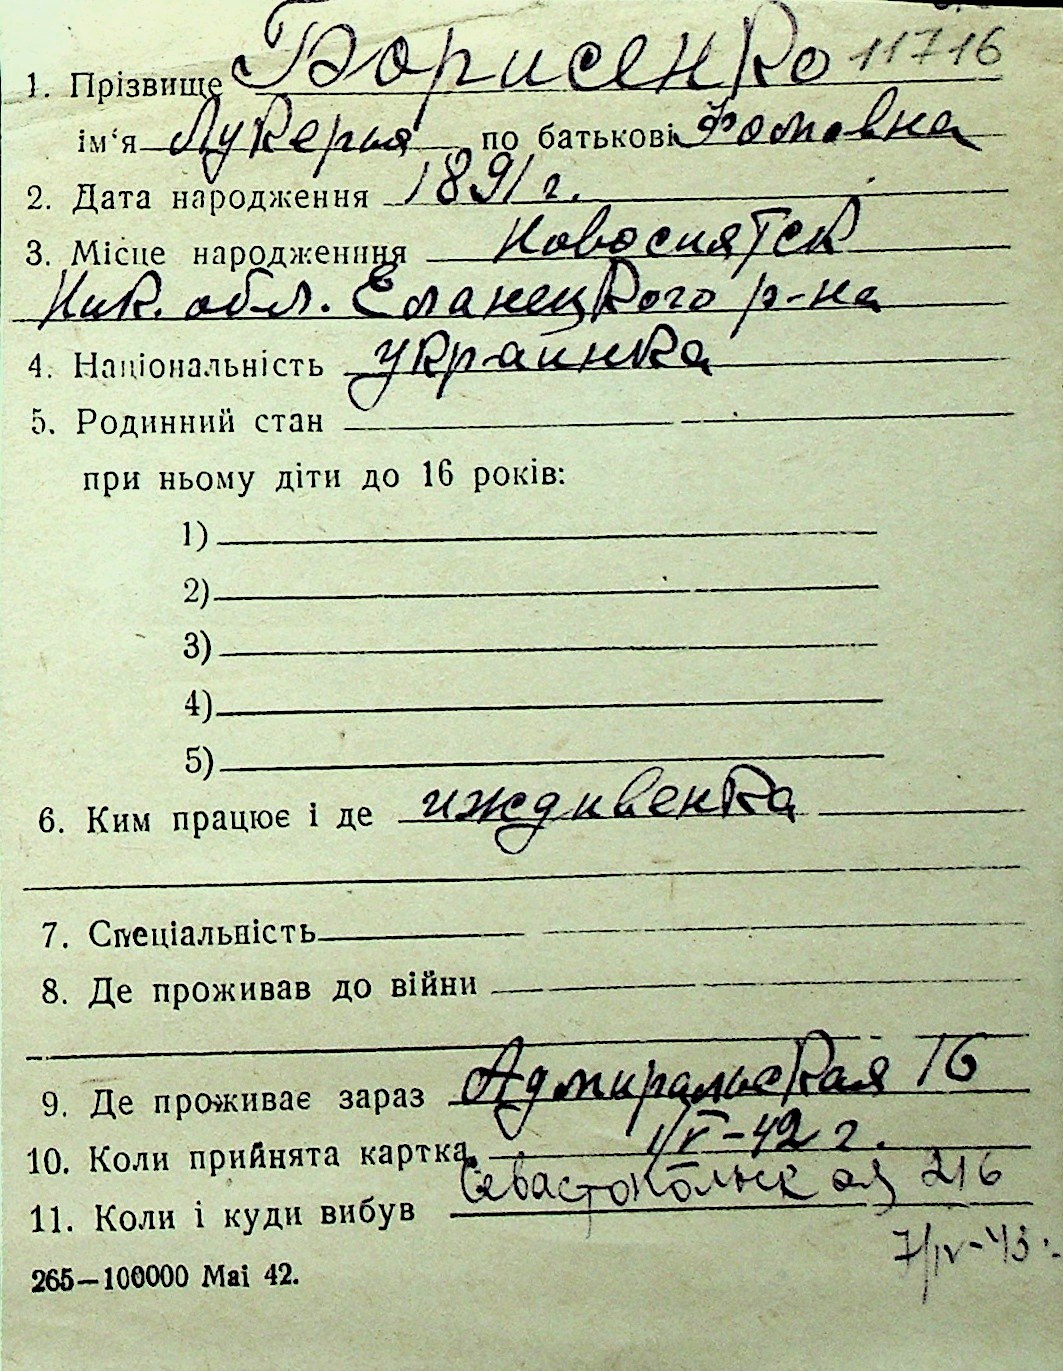 1. Прізвище Борисенко 11716
ім‘я Лукерья по батькові Фомовна
2. Дата народження 1891 г.
3. Місце народженння
Ник. обл. Еланецкого р-на
4. Національність украинка
5. Родинний стан
при ньому діти до 16 років:
1)
2)
3)
4)
5)
6. Ким працює і де иждивенка
7. Спеціальність
8. Де проживав до війни
9. Де проживає зараз Адмиральская 16
10. Коли прийнята картка -42 г.
11. Коли і куди вибув 216
7/IV-43
265—100000 Mai 42.